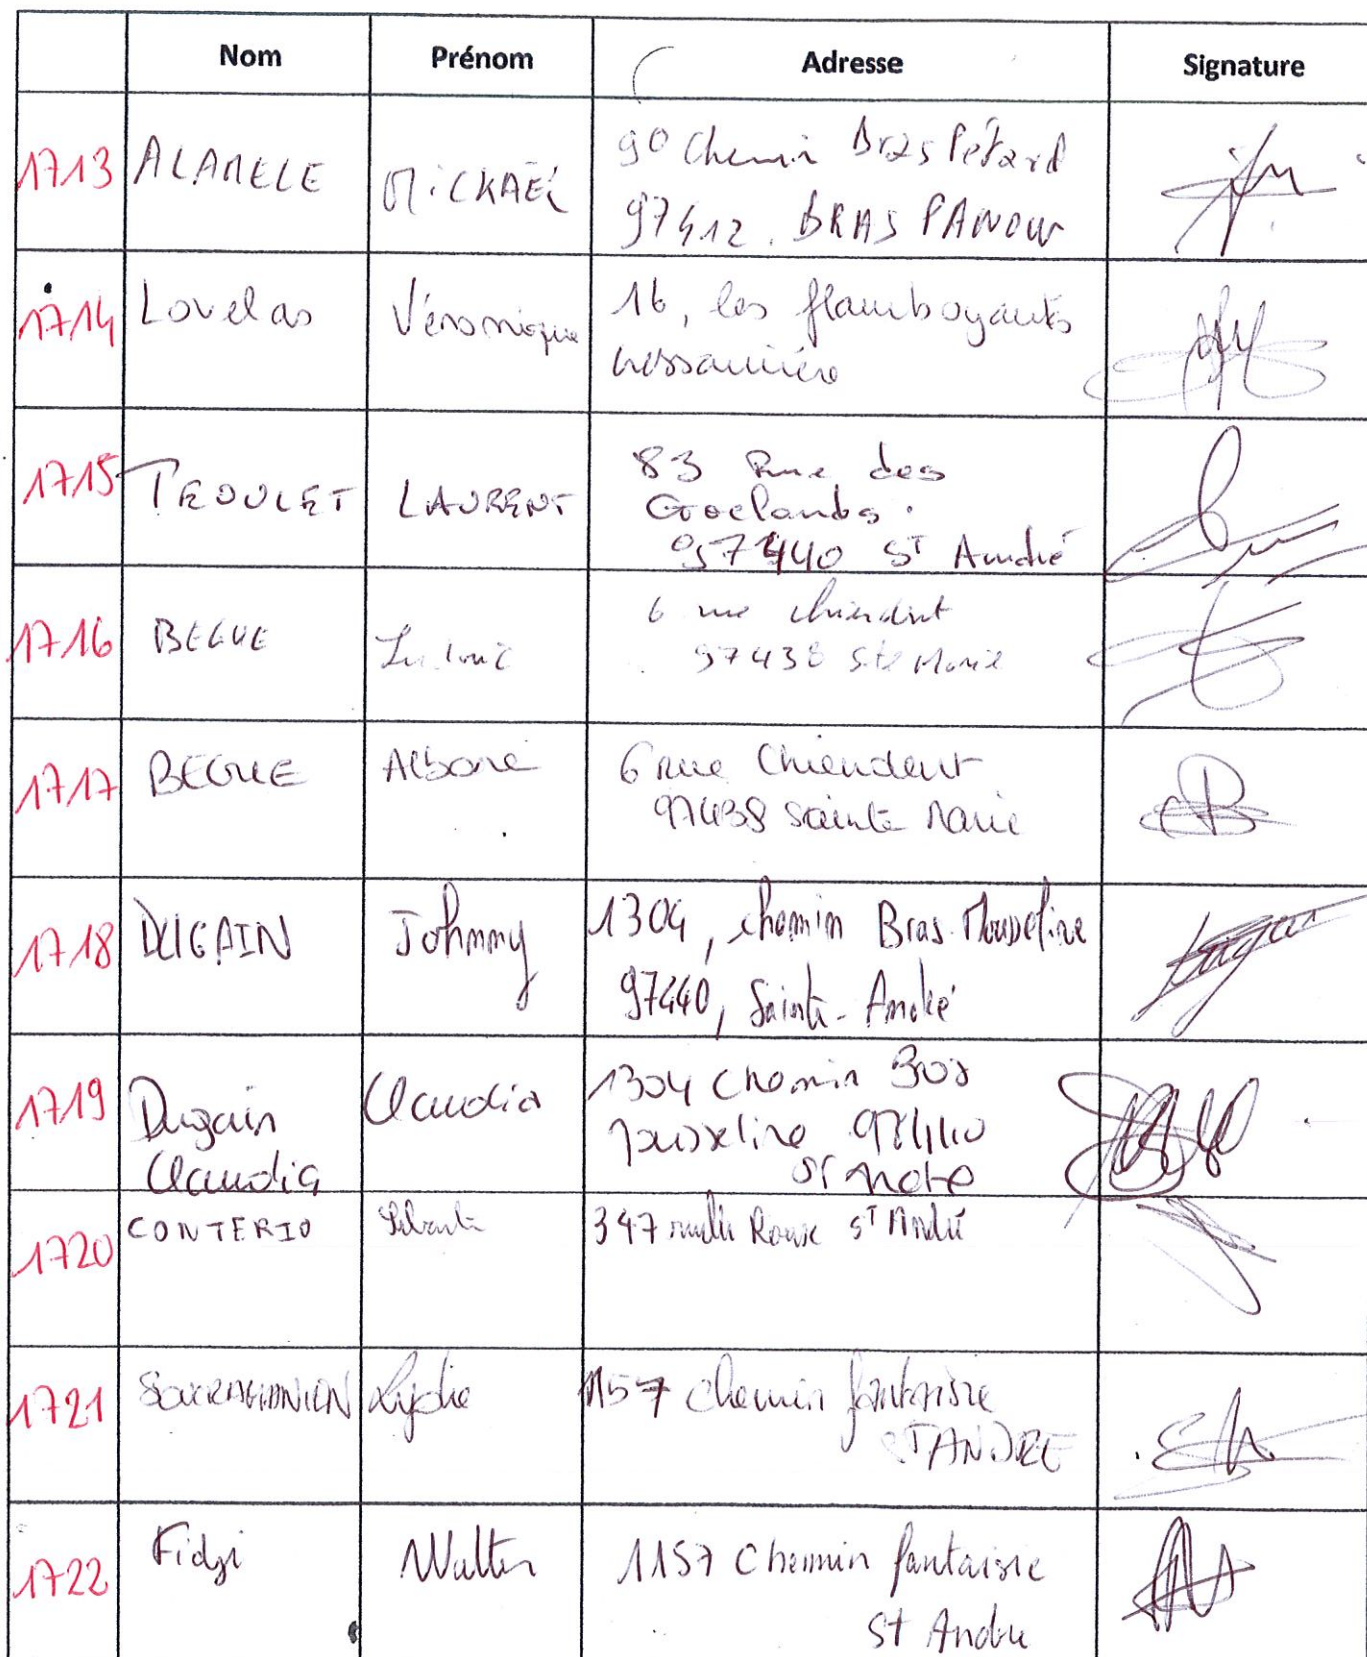 Nom Prénom Adresse Signature
1713 ALAMELE MICKAËL 90 Chemin Bras Pétard
97412. BRAS PANON
1714 Lovelas Véronique 16, les flamboyants
cressonnière
1715 TROULET LAURENT 83 Rue des
Goelands.
97440 ST André
1716 BEGUE 6 rue chiendent
97438 Ste Marie
1717 BEGUE Albane 6 rue Chiendent
97438 Sainte Marie
1718 DUGAIN Johnny 1304, chemin Bras Mousseline
97440, Sainte-André
1719 Dugain Claudia Claudia 1304 chemin Bos
mousseline 97440
St André
1720 CONTERIO 347 ST André
1721 Lydie 1157 chemin fantaisie
ST ANDRE
1722 Fidji Walter 1157 Chemin fantaisie
St Andre